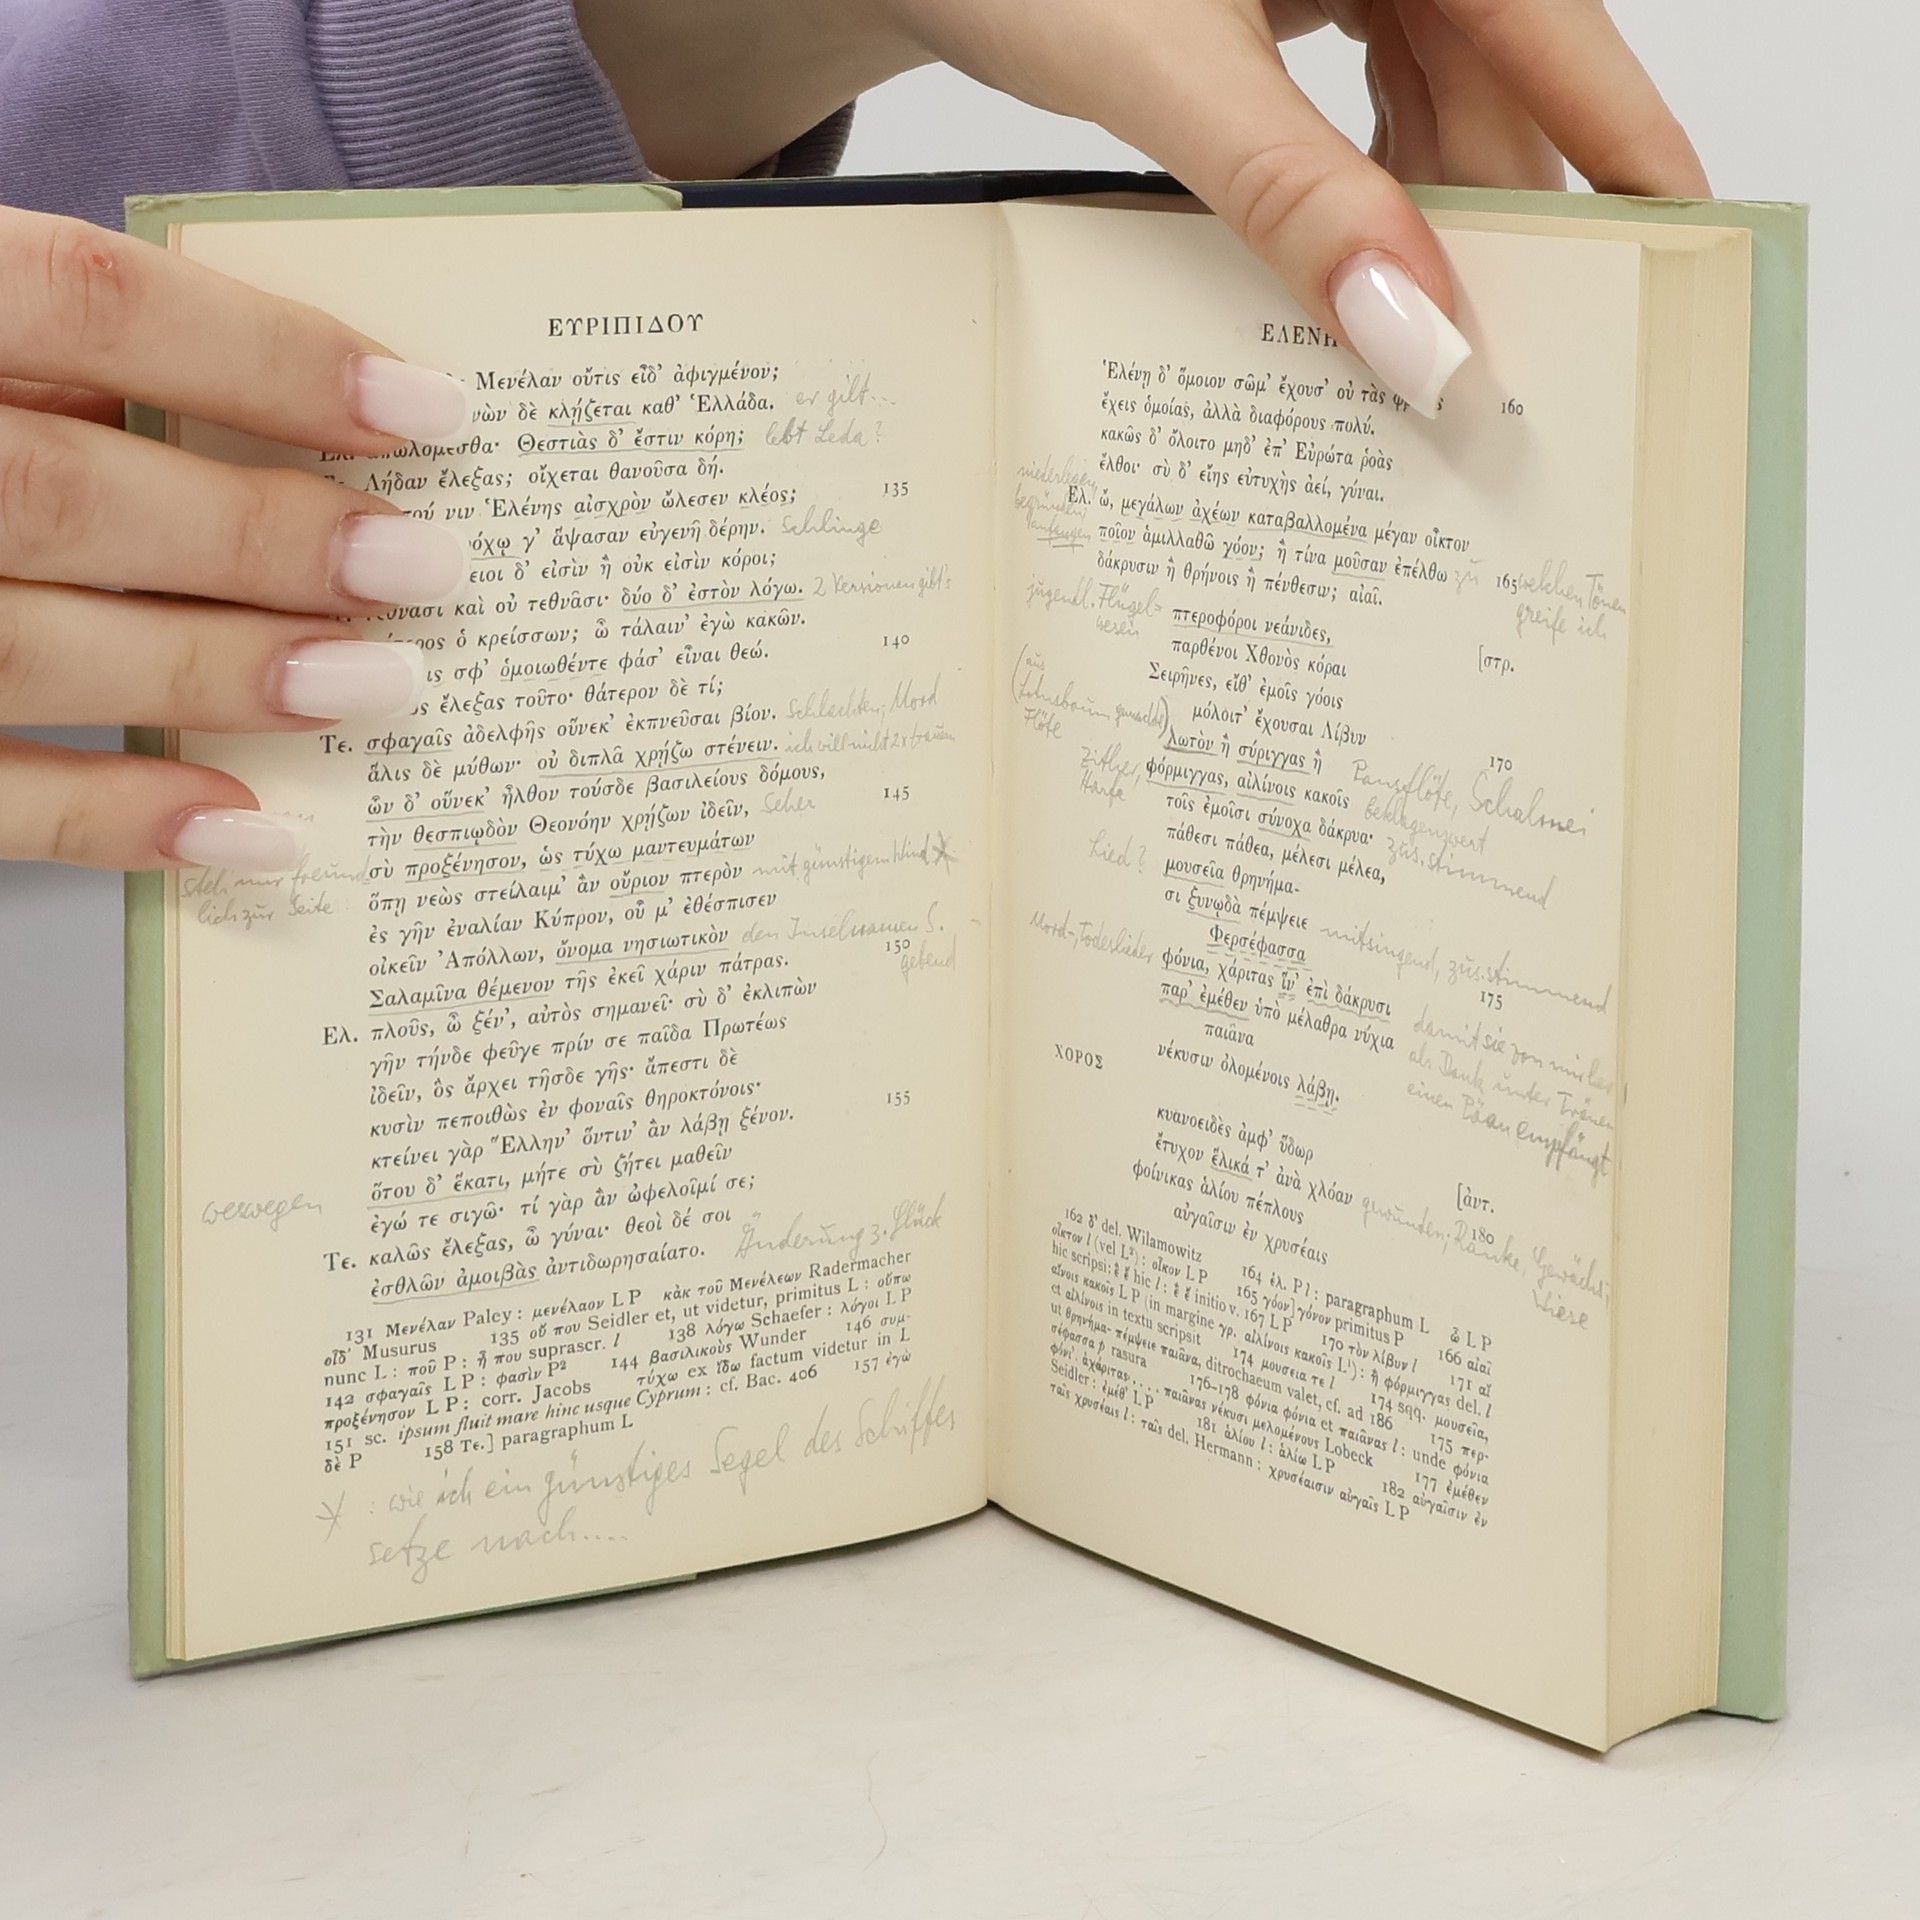 ΕΥΡΙΠΙΔΟΥ
Μενέλαν οὔτις εἶδ' ἀφιγμένον;
δὲ κλῄζεται καθ' Ἑλλάδα. er gilt...
Θεστιὰς δ' ἔστιν κόρη; lebt Leda?
Λήδαν ἔλεξας; οἴχεται θανοῦσα δή.
νιν Ἑλένης αἰσχρὸν ὤλεσεν κλέος; 135
γ' ἅψασαν εὐγενῆ δέρην. Schlinge
δ' εἰσὶν ἢ οὐκ εἰσὶν κόροι;
καὶ οὐ τεθνᾶσι· δύο δ' ἐστὸν λόγω. 2 Versionen gibt's
ὁ κρείσσων; ὦ τάλαιν' ἐγὼ κακῶν.
σφ' ὁμοιωθέντε φάσ' εἶναι θεώ. 140
ἔλεξας τοῦτο· θάτερον δὲ τί;
Τε. σφαγαῖς ἀδελφῆς οὕνεκ' ἐκπνεῦσαι βίον. Schlachten, Mord
ἅλις δὲ μύθων· οὐ διπλᾶ χρῄζω στένειν. ich will nicht 2x trauern
ὧν δ' οὕνεκ' ἦλθον τούσδε βασιλείους δόμους,
τὴν θεσπιῳδὸν Θεονόην χρῄζων ἰδεῖν, Seher 145
σὺ προξένησον, ὡς τύχω μαντευμάτων
steh mir freund
lich zur Seite
ὅπῃ νεὼς στείλαιμ' ἂν οὔριον πτερὸν mit günstigem Wind
ἐς γῆν ἐναλίαν Κύπρον, οὗ μ' ἐθέσπισεν
οἰκεῖν Ἀπόλλων, ὄνομα νησιωτικὸν den Inselnamen S.
gebend
Σαλαμῖνα θέμενον τῆς ἐκεῖ χάριν πάτρας. 150
Ελ. πλοῦς, ὦ ξέν', αὐτὸς σημανεῖ· σὺ δ' ἐκλιπὼν
γῆν τήνδε φεῦγε πρίν σε παῖδα Πρωτέως
ἰδεῖν, ὃς ἄρχει τῆσδε γῆς· ἄπεστι δὲ
κυσὶν πεποιθὼς ἐν φοναῖς θηροκτόνοις·
κτείνει γὰρ Ἕλλην' ὅντιν' ἂν λάβῃ ξένον. 155
weswegen ὅτου δ' ἕκατι, μήτε σὺ ζήτει μαθεῖν
ἐγώ τε σιγῶ· τί γὰρ ἂν ὠφελοῖμί σε;
Τε. καλῶς ἔλεξας, ὦ γύναι· θεοὶ δέ σοι
ἐσθλῶν ἀμοιβὰς ἀντιδωρησαίατο. Änderung z. Glück
131 Μενέλαν Paley : μενέλαον L P κἀκ τοῦ Μενέλεων Radermacher
οἶδ' Musurus 135 οὔ που Seidler et, ut videtur, primitus L : οὔπω
nunc L : ποῦ P : ἦ που suprascr. l 138 λόγω Schaefer : λόγοι L P
142 σφαγαῖς L P : φασὶν P² 144 βασιλικοὺς Wunder 146 συμ-
προξένησον L P : corr. Jacobs τύχω ex ἴδω factum videtur in L
151 sc. ipsum fluit mare hinc usque Cyprum : cf. Bac. 406 157 ἐγὼ
δὲ P 158 Τε.] paragraphum L
: wie ich ein günstiges Segel des Schiffes
setze nach....
ΕΛΕΝΗ
Ἑλένῃ δ' ὅμοιον σῶμ' ἔχουσ' οὐ τὰς 160
ἔχεις ὁμοίας, ἀλλὰ διαφόρους πολύ.
κακῶς δ' ὄλοιτο μηδ' ἐπ' Εὐρώτα ῥοὰς
ἔλθοι· σὺ δ' εἴης εὐτυχὴς ἀεί, γύναι.
niederlegen
Ελ. ὤ, μεγάλων ἀχέων καταβαλλομένα μέγαν οἶκτον
ποῖον ἁμιλλαθῶ γόον; ἢ τίνα μοῦσαν ἐπέλθω 165 zu welchen Tönen
greife ich
δάκρυσιν ἢ θρήνοις ἢ πένθεσιν; αἰαῖ.
jugendl. Flügel=
wesen
πτεροφόροι νεάνιδες, [στρ.
παρθένοι Χθονὸς κόραι
Σειρῆνες, εἴθ' ἐμοῖς γόοις
(aus
Lotusbaum gemachte)
Flöte
μόλοιτ' ἔχουσαι Λίβυν 170
λωτὸν ἢ σύριγγας ἢ Panflöte, Schalmei
Zither,
Harfe
φόρμιγγας, αἰλίνοις κακοῖς beklagenswert
τοῖς ἐμοῖσι σύνοχα δάκρυα· zus.stimmend
πάθεσι πάθεα, μέλεσι μέλεα,
Lied? μουσεῖα θρηνήμα-
σι ξυνῳδὰ πέμψειε mitsingend, zus.stimmend
Φερσέφασσα 175
Mord-, Totenlieder φόνια, χάριτας ἵν' ἐπὶ δάκρυσι
παρ' ἐμέθεν ὑπὸ μέλαθρα νύχια
παιᾶνα
damit sie von mir her
als Dank unter Tränen
einen Päan empfängt
νέκυσιν ὀλομένοις λάβῃ.
ΧΟΡΟΣ
κυανοειδὲς ἀμφ' ὕδωρ [ἀντ.
ἔτυχον ἕλικά τ' ἀνὰ χλόαν 180 gewunden; Ranke, Gewächs;
Wiese
φοίνικας ἁλίου πέπλους
αὐγαῖσιν ἐν χρυσέαις
162 δ' del. Wilamowitz 164 ἑλ. P l : paragraphum L ὦ L P
οἶκτον l (vel L²) : οἶκον L P 165 γόον] γόνον primitus P 166 αἰαῖ
hic scripsi : ἒ ἔ hic l : ἒ ἔ initio v. 167 L P 170 τὸν λίβυν l 171 αἰ
αἴνοις κακοῖς L P (in margine γρ. αἰλίνοις κακοῖς L¹) : ἢ φόρμιγγας del. l
et αἰλίνοις in textu scripsit 174 μουσεια τε l 174 sqq. μουσεῖα,
ut θρηνήμα- πέμψειε παιᾶνα, ditrochaeum valet, cf. ad 186 175 περ-
σέφασσα p rasura 176-178 φόνια φόνια et παιᾶνας l : unde φόνια
φόνι' ἀχάριτας .... παιᾶνας νέκυσι μελομένους Lobeck 177 ἐμέθεν
Seidler : ἐμέθ' L P 181 ἁλίου l : ἁλίῳ L P 182 αὐγαῖσιν ἐν
ταῖς χρυσέαις l : ταῖς del. Hermann : χρυσέαισιν αὐγαῖς L P